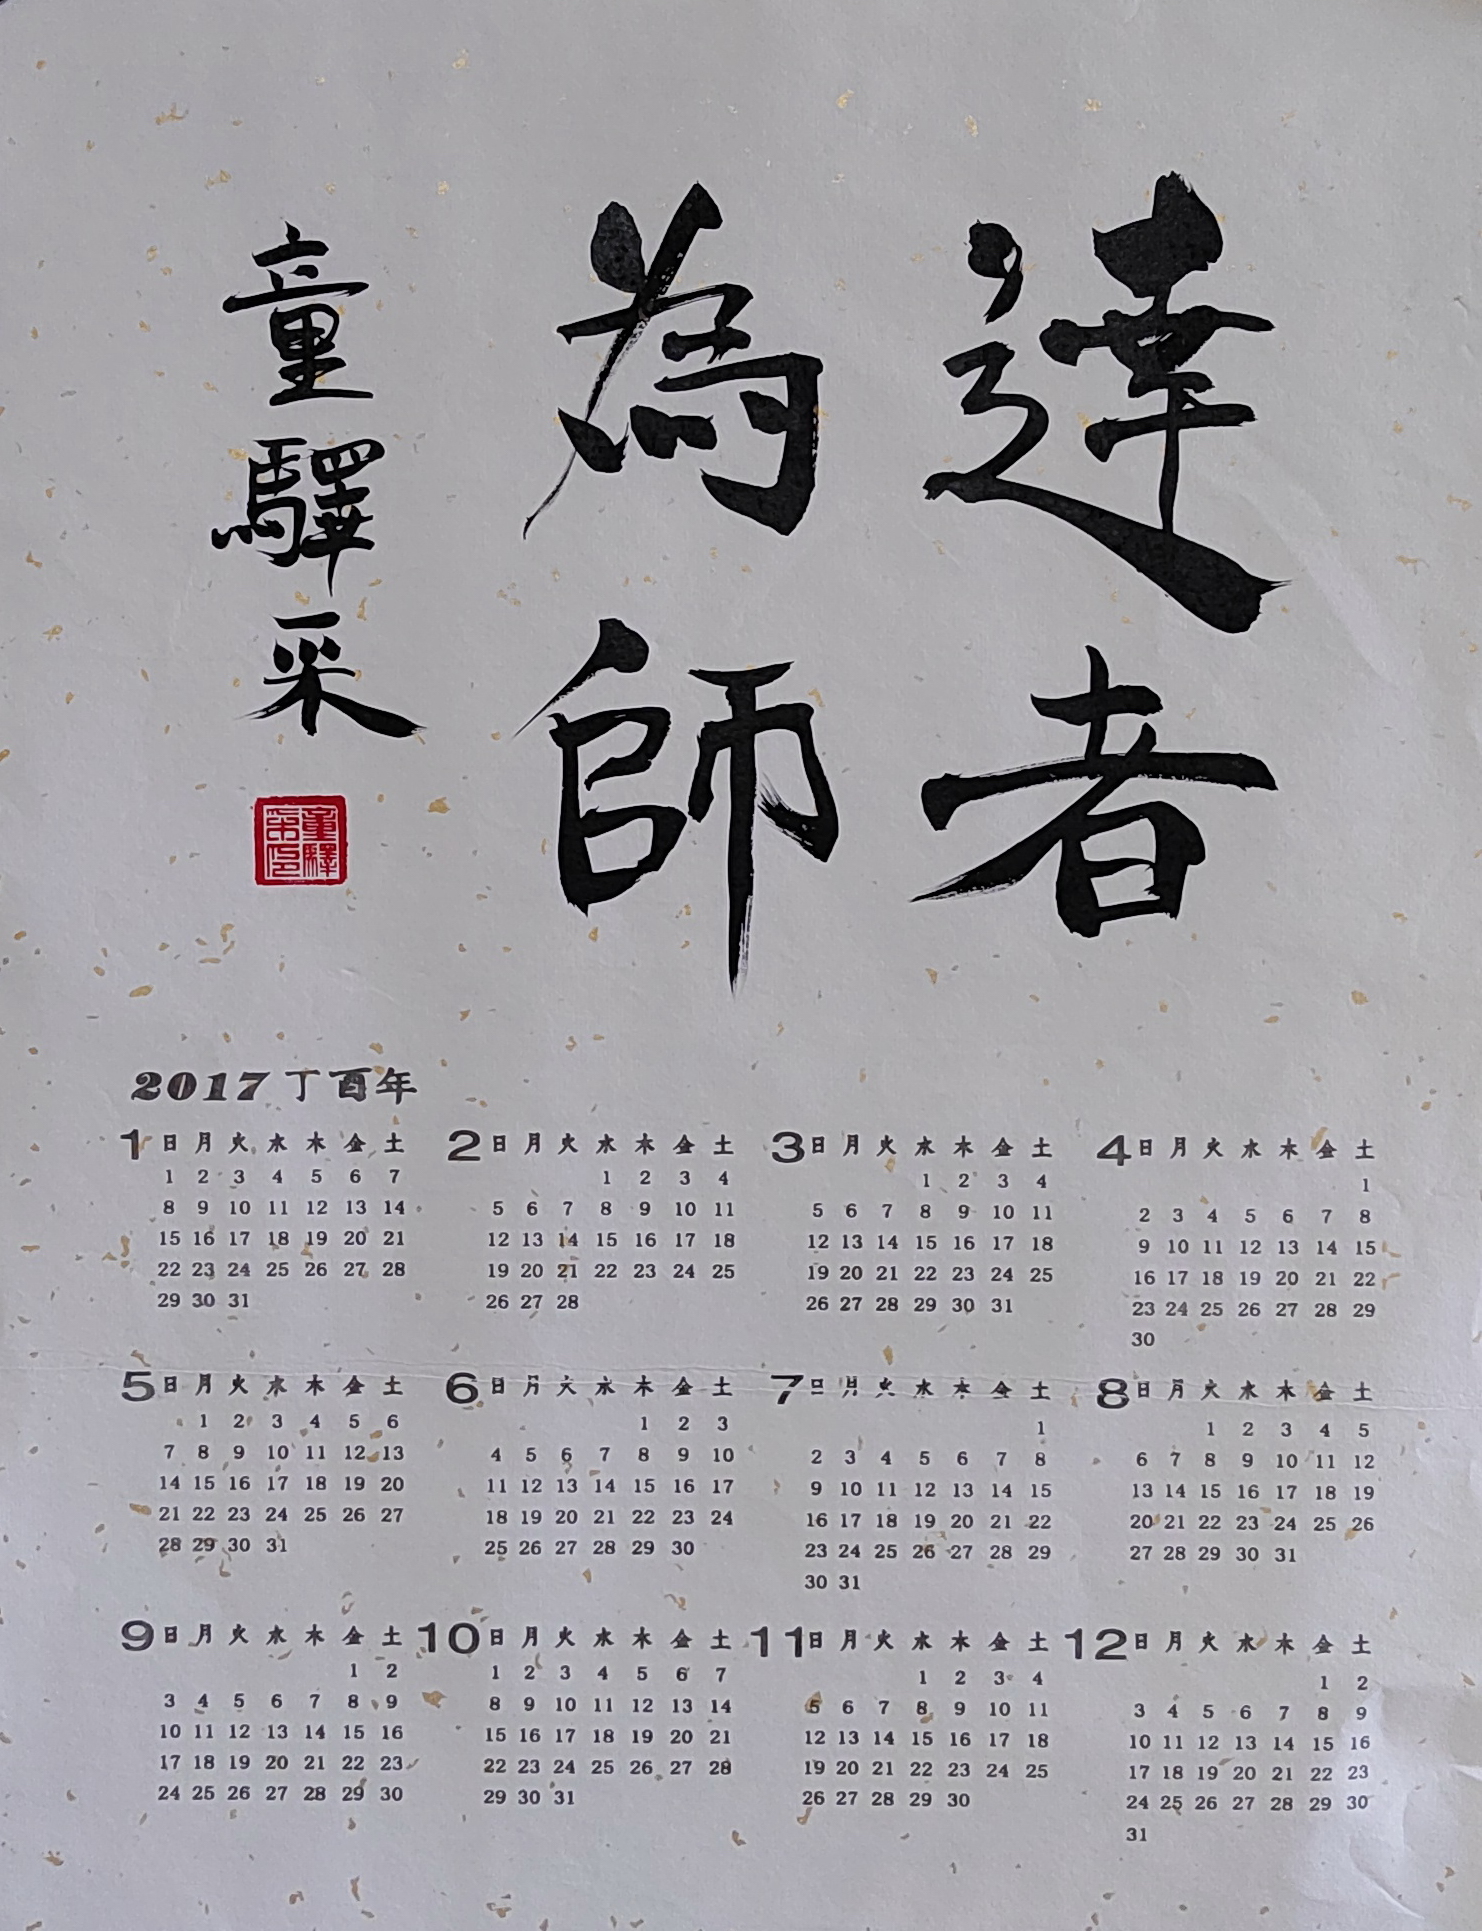 達者
為師
童驛采
童驛
采印
2017 丁酉年
1 日 月 火 水 木 金 土
1 2 3 4 5 6 7
8 9 10 11 12 13 14
15 16 17 18 19 20 21
22 23 24 25 26 27 28
29 30 31
2 日 月 火 水 木 金 土
1 2 3 4
5 6 7 8 9 10 11
12 13 14 15 16 17 18
19 20 21 22 23 24 25
26 27 28
3 日 月 火 水 木 金 土
1 2 3 4
5 6 7 8 9 10 11
12 13 14 15 16 17 18
19 20 21 22 23 24 25
26 27 28 29 30 31
4 日 月 火 水 木 金 土
1
2 3 4 5 6 7 8
9 10 11 12 13 14 15
16 17 18 19 20 21 22
23 24 25 26 27 28 29
30
5 日 月 火 水 木 金 土
1 2 3 4 5 6
7 8 9 10 11 12 13
14 15 16 17 18 19 20
21 22 23 24 25 26 27
28 29 30 31
6 日 月 火 水 木 金 土
1 2 3
4 5 6 7 8 9 10
11 12 13 14 15 16 17
18 19 20 21 22 23 24
25 26 27 28 29 30
7 日 月 火 水 木 金 土
1
2 3 4 5 6 7 8
9 10 11 12 13 14 15
16 17 18 19 20 21 22
23 24 25 26 27 28 29
30 31
8 日 月 火 水 木 金 土
1 2 3 4 5
6 7 8 9 10 11 12
13 14 15 16 17 18 19
20 21 22 23 24 25 26
27 28 29 30 31
9 日 月 火 水 木 金 土
1 2
3 4 5 6 7 8 9
10 11 12 13 14 15 16
17 18 19 20 21 22 23
24 25 26 27 28 29 30
10 日 月 火 水 木 金 土
1 2 3 4 5 6 7
8 9 10 11 12 13 14
15 16 17 18 19 20 21
22 23 24 25 26 27 28
29 30 31
11 日 月 火 水 木 金 土
1 2 3 4
5 6 7 8 9 10 11
12 13 14 15 16 17 18
19 20 21 22 23 24 25
26 27 28 29 30
12 日 月 火 水 木 金 土
1 2
3 4 5 6 7 8 9
10 11 12 13 14 15 16
17 18 19 20 21 22 23
24 25 26 27 28 29 30
31